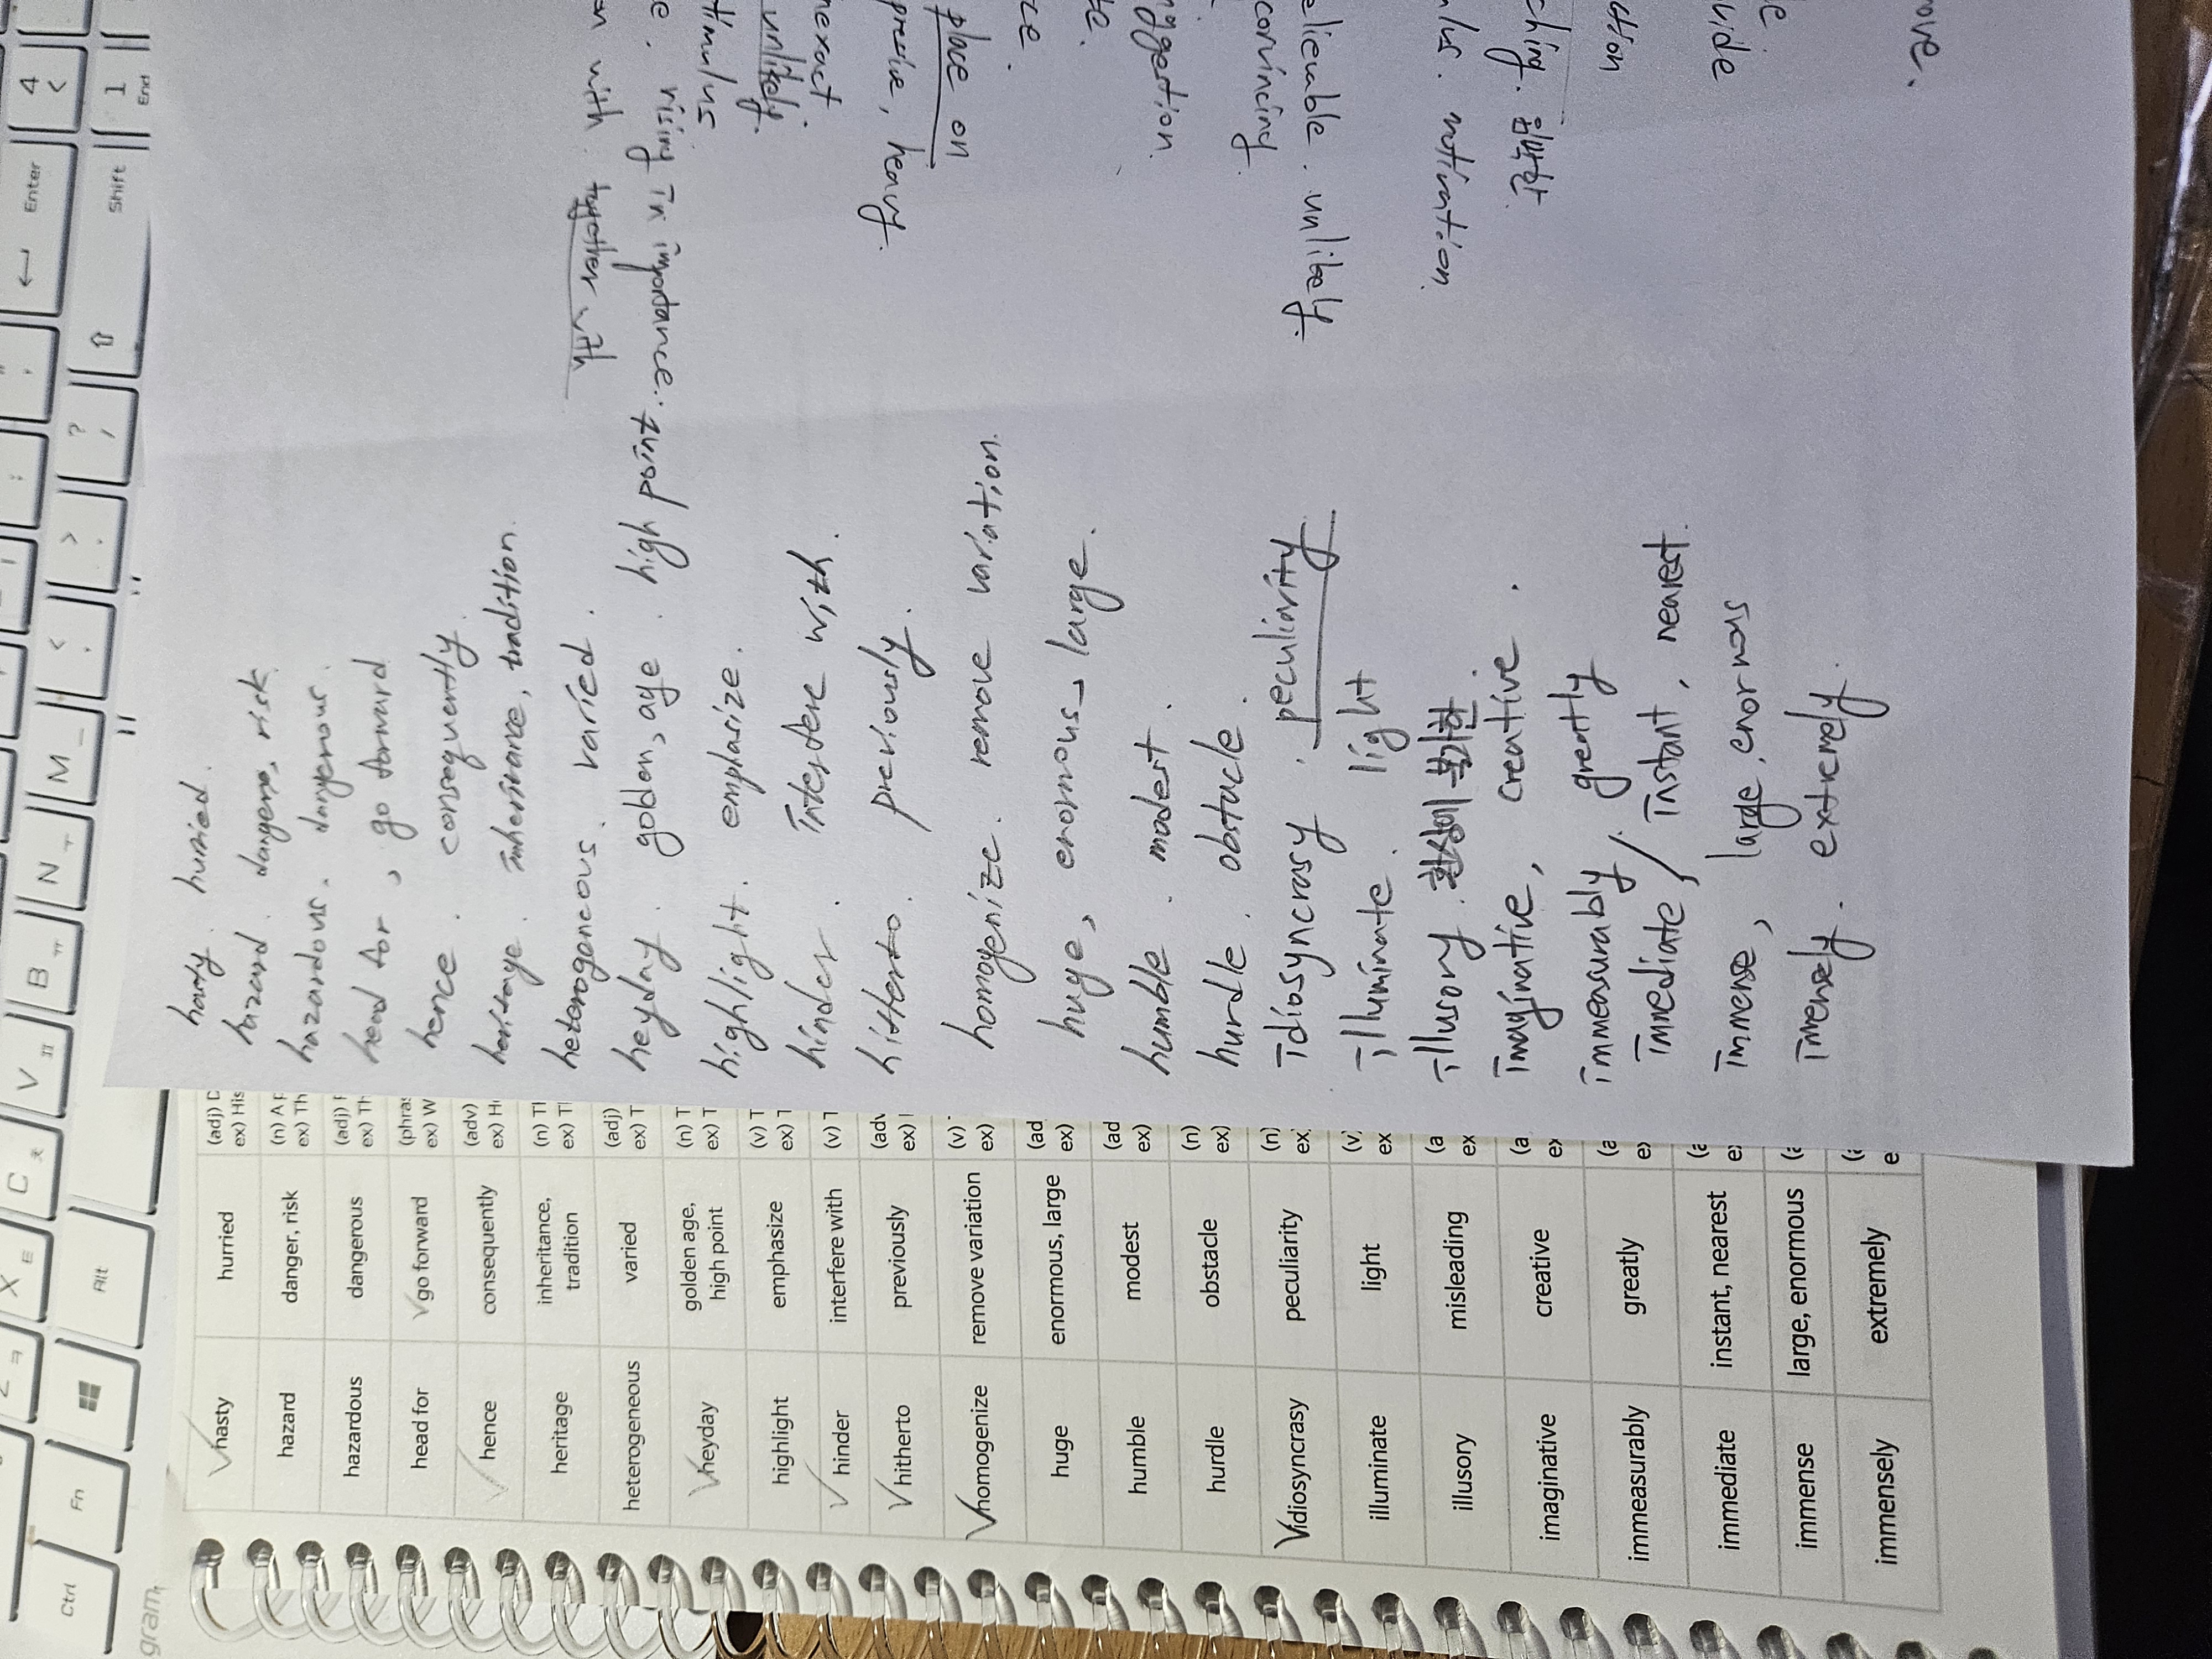 hasty hurried (adj)
ex) His
hazard danger, risk (n)
ex) Th
hazardous dangerous (adj)
ex) Th
head for go forward (phras
ex) W
hence consequently (adv)
ex) H
heritage inheritance,
tradition (n)
ex) T
heterogeneous varied (adj)
ex) T
heyday golden age,
high point (n) T
ex) T
highlight emphasize (v) T
ex) T
hinder interfere with (v)
hitherto previously (adv
ex)
homogenize remove variation (v)
ex)
huge enormous, large (ad
ex)
humble modest (ad
ex)
hurdle obstacle (n)
ex)
idiosyncrasy peculiarity (n)
ex
illuminate light (v)
ex
illusory misleading (a
ex
imaginative creative (a
immeasurably greatly (a
immediate instant, nearest
immense large, enormous
immensely extremely
hasty. hurried.
hazard. dangens, risk
hazardous. dangerous.
head for, go forward
hence. consequently.
heritage. inheritance, tradition.
heterogeneous. varied.
heyday. golden, age. high point.
highlight. emphasize.
hinder. interfere with.
hitherto. previously.
homogenize. remove variation.
huge, enormous, large.
humble. modest.
hurdle. obstacle.
idiosyncrasy. peculiarity
illuminate. light
illusory. 환상에 불과한
imaginative, creative.
immeasurably. greatly
immediate, instant, nearest.
immense, large, enormous
immensely. extremely.
with
rising in importance.
stimulus
unlikely.
inexact
heavy.
place on
suggestion.
convincing.
unlikely.
motivation
Ctrl
Fn
Alt
Z ㅋ
X ㅌ
C ㅊ
V ㅍ
B ㅠ
N ㅜ
M ㅡ
< ,
> .
? /
Shift
Enter
4
1
End
gram